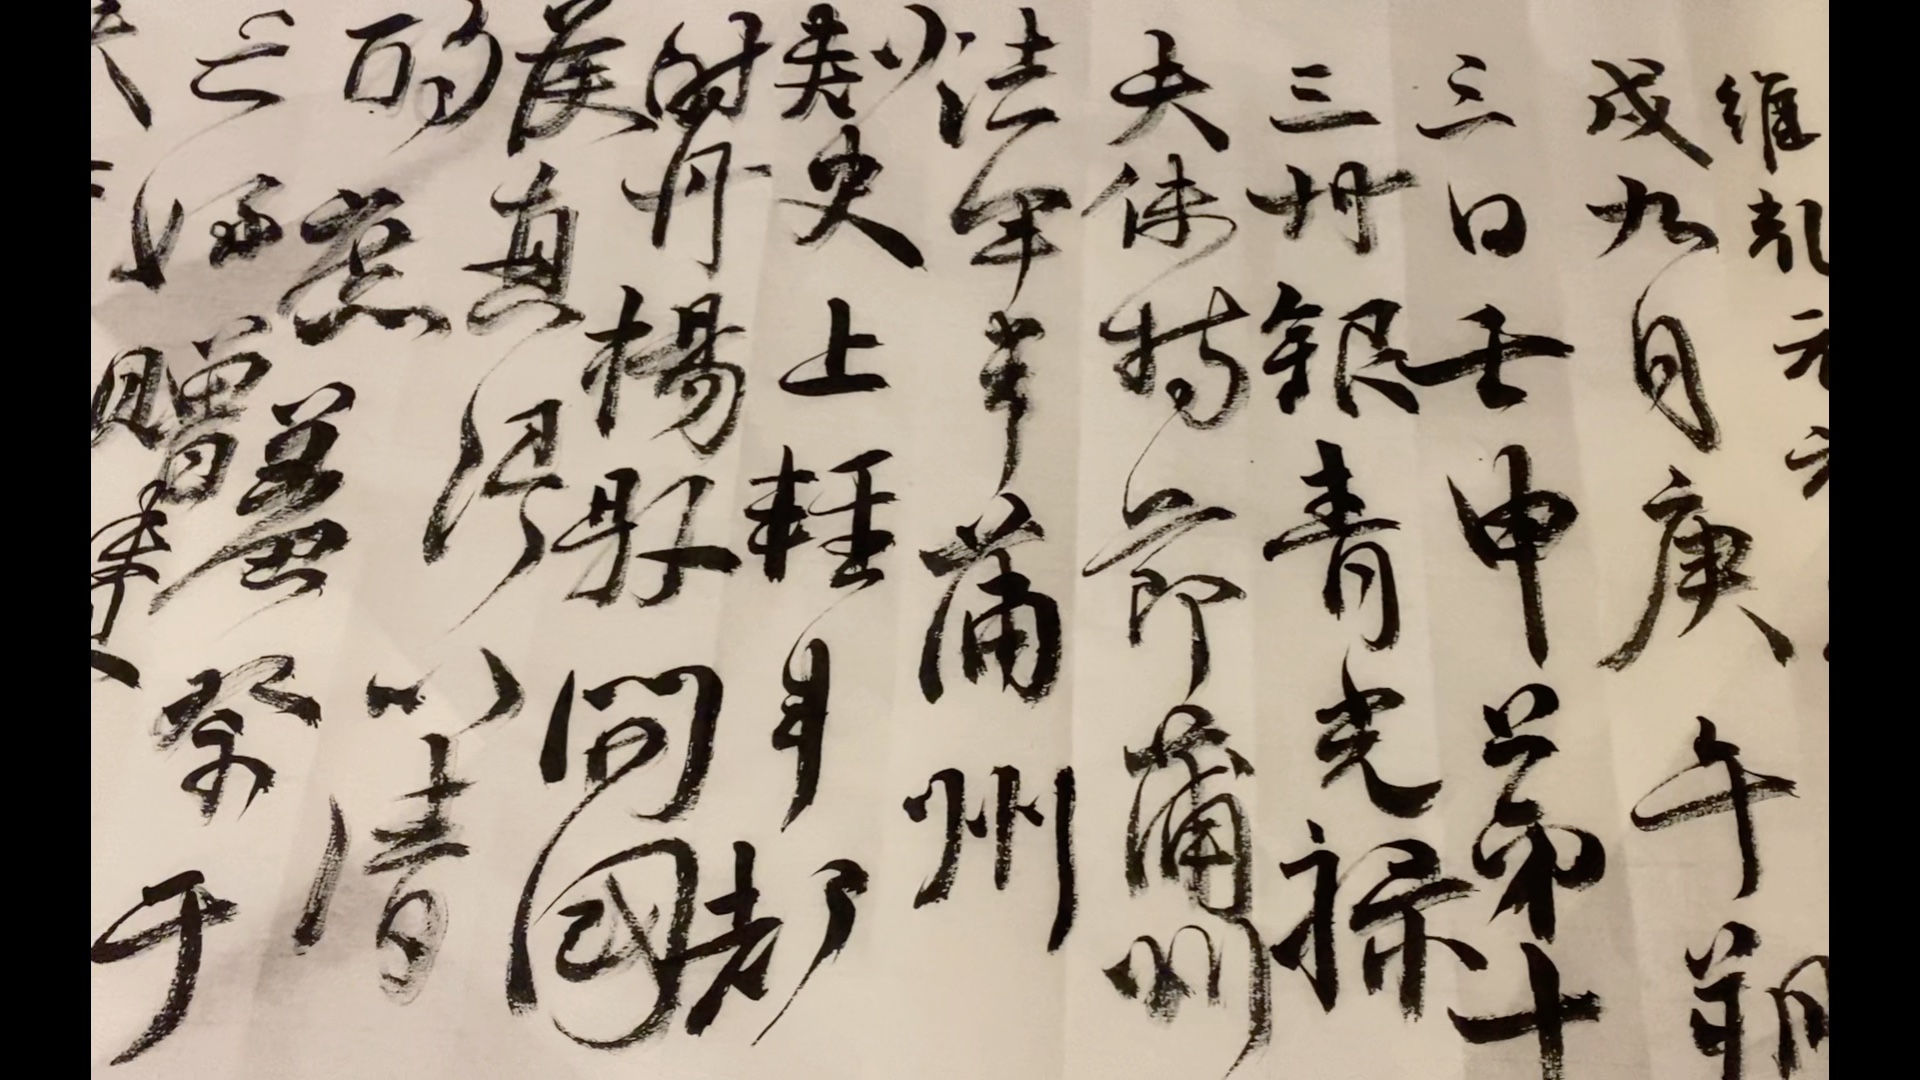 維乾元元
戌九月庚午朔
三日壬申第十
三叔銀青光祿
夫使持節蒲州
諸軍事蒲州
刺史上輕車都
尉丹楊縣開國
侯真卿以清
酌庶羞祭于
亡姪贈贊